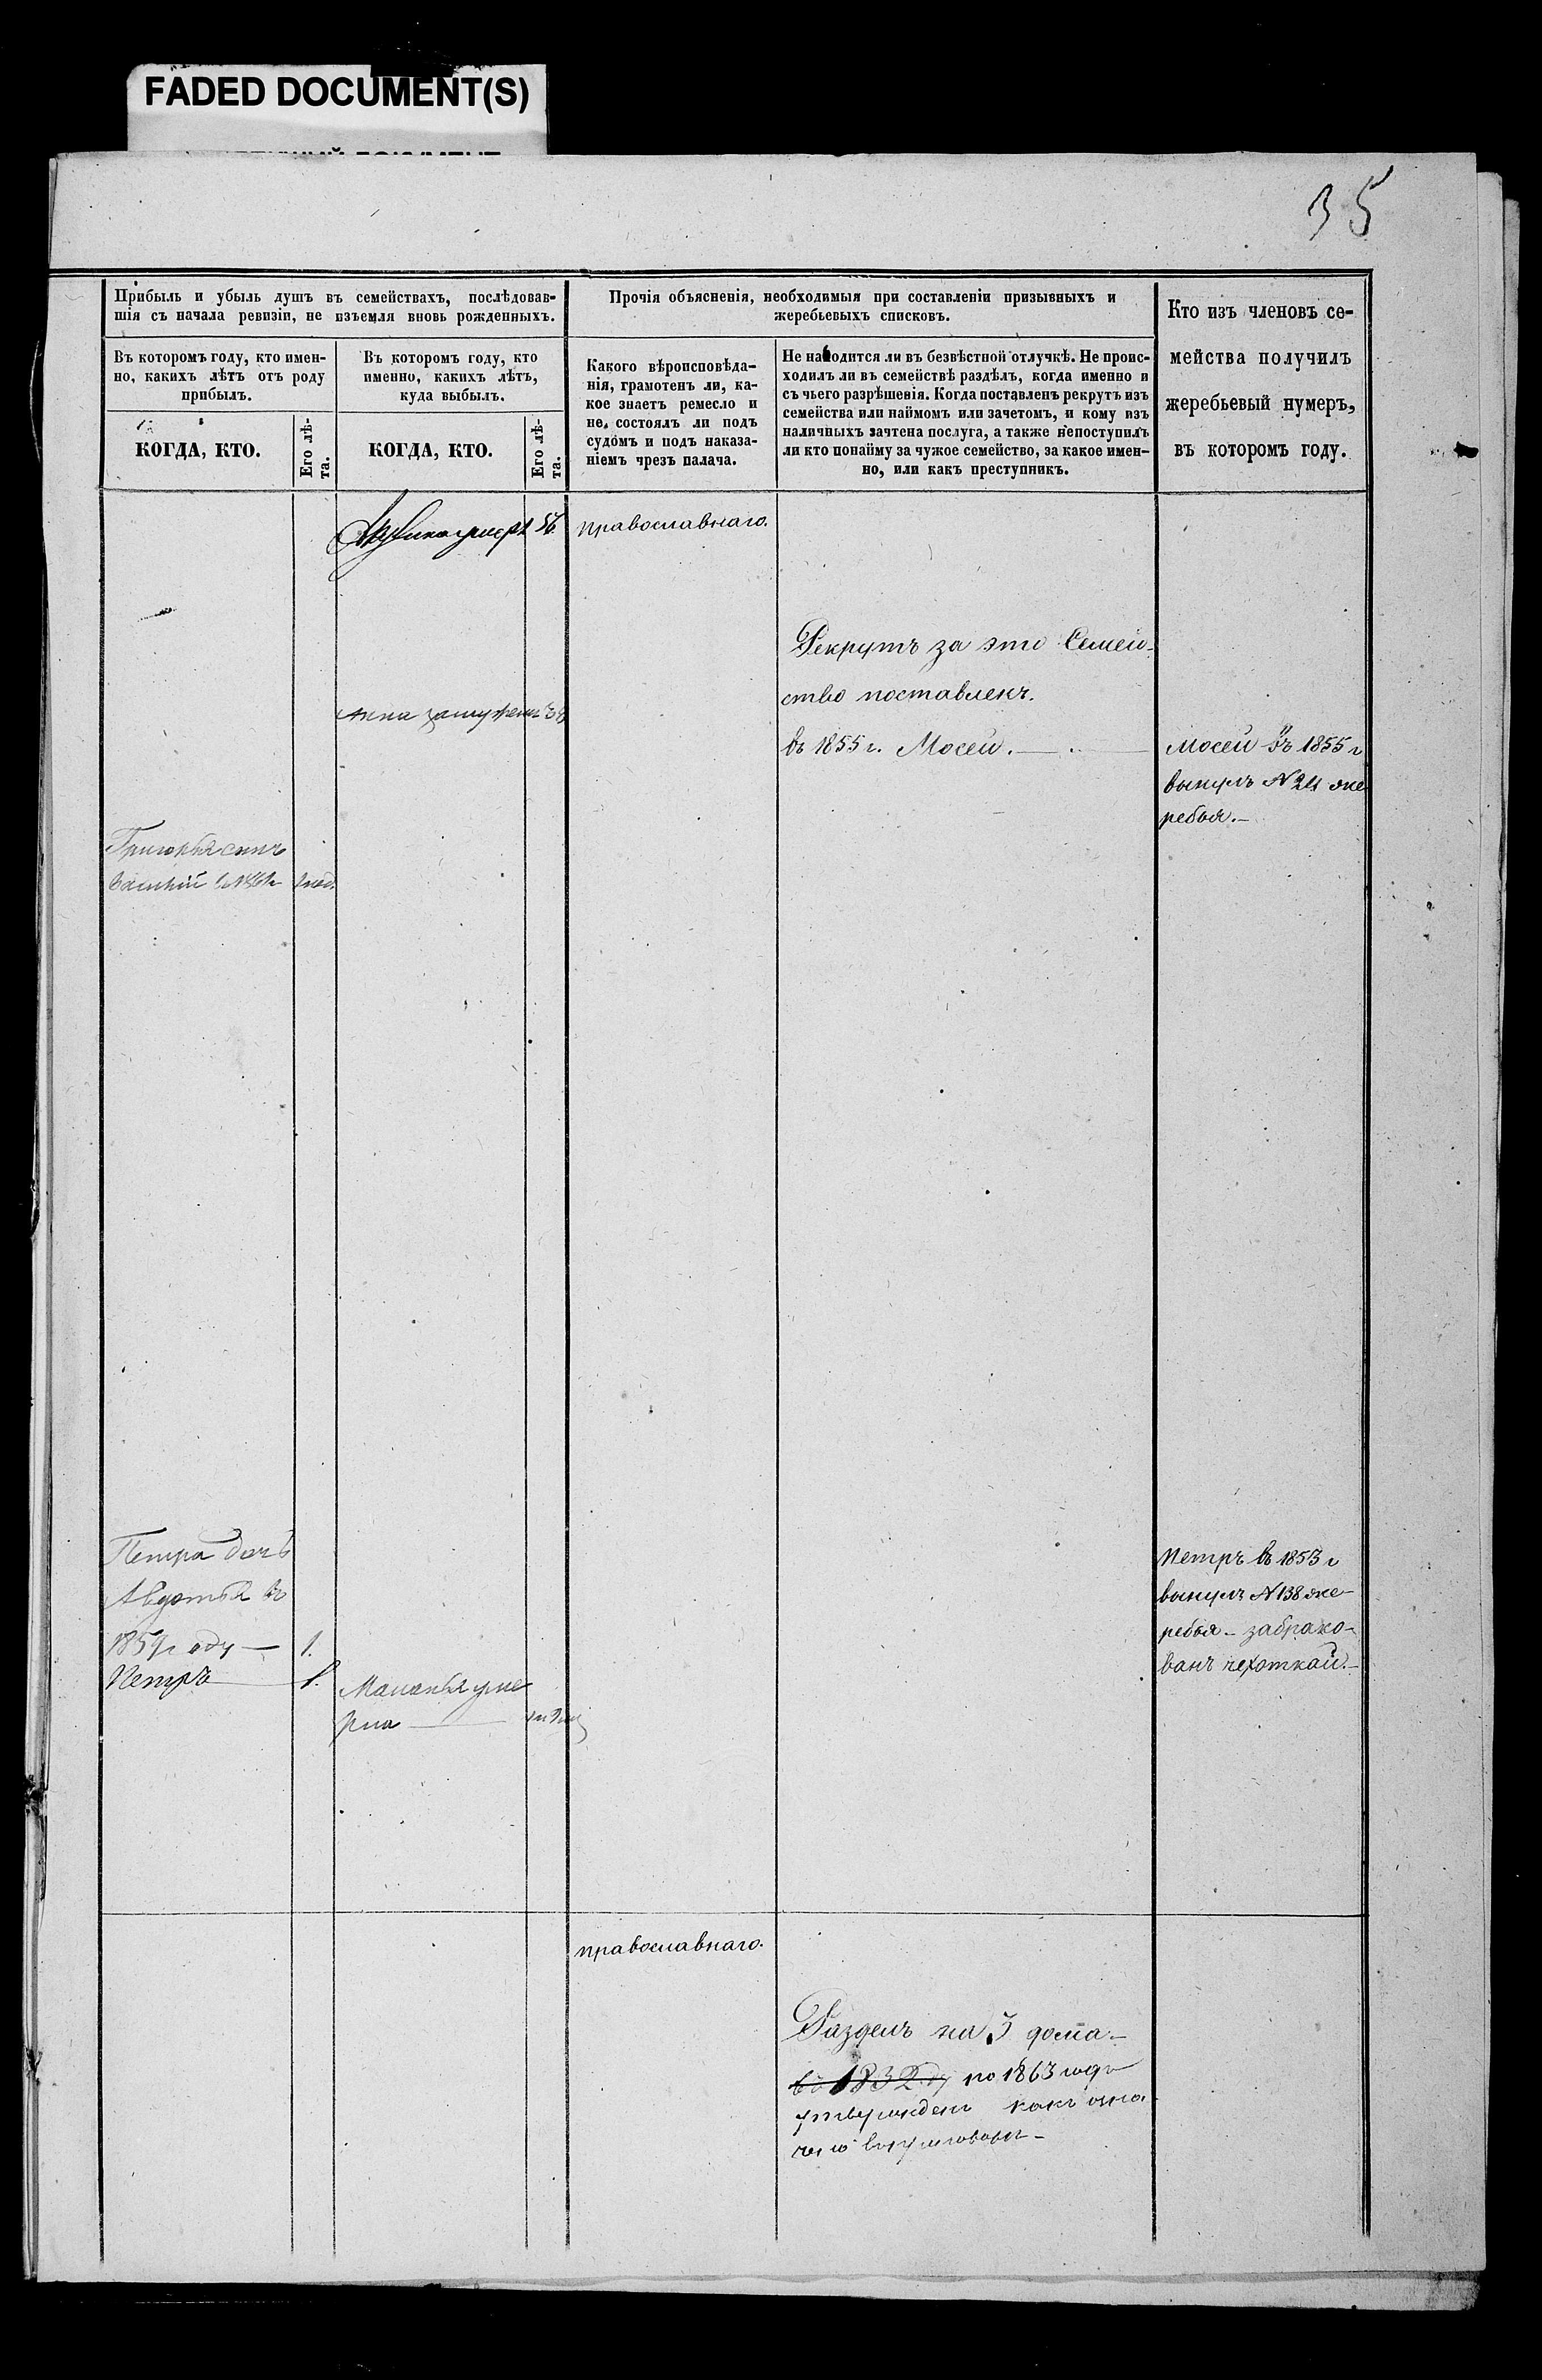 FADED DOCUMENT(S)
35
Прибыль и убыль душъ въ семействахъ, послѣдовав-
шія съ начала ревизіи, не изъемля вновь рожденныхъ.
Прочія объясненія, необходимыя при составленіи призывныхъ и
жеребьевыхъ списковъ.
Кто изъ членовъ се-
мейства получилъ
жеребьевый нумеръ,
въ которомъ году.
Въ которомъ году, кто имен-
но, какихъ лѣтъ отъ роду
прибылъ.
Въ которомъ году, кто
именно, какихъ лѣтъ,
куда выбылъ.
Какого вѣроисповѣда-
нія, грамотенъ ли, ка-
кое знаетъ ремесло и
не состоялъ ли подъ
судомъ и подъ наказа-
ніемъ чрезъ палача.
Не находится ли въ безвѣстной отлучкѣ. Не проис-
ходилъ ли въ семействѣ раздѣлъ, когда именно и
съ чьего разрѣшенія. Когда поставленъ рекрутъ изъ
семейства или наймомъ или зачетомъ, и кому изъ
наличныхъ зачтена послуга, а также непоступилъ
ли кто понайму за чужое семейство, за какое имен-
но, или какъ преступникъ.
КОГДА, КТО.
Его лѣ-
та.
КОГДА, КТО.
Его лѣ-
та.
56
православнаго.
Рекрутъ за это Семей-
ство поставленъ.
Анна замужемъ
въ 1855 г. Мосей.
Мосей въ 1855 г
вынулъ N 24 же
ребья.
Григорья сынъ
Василій
Петра дочь
Авдотья въ
1859 году — 1.
Петръ — 1.
Маланья уме
рла
Петръ въ 1853 г
вынулъ N 138 же-
ребья - забрако-
ванъ чехоткай.
православнаго.
Разделъ на 3 дома-
въ 1832 по 1863 годъ
утвержденъ какъ